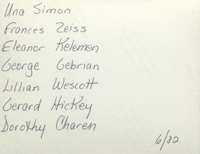 Una Simon
Frances Zeiss
Eleanor Kelemen
George Gebrian
Lillian Wescott
Gerard Hickey
Dorothy Charen
6/82